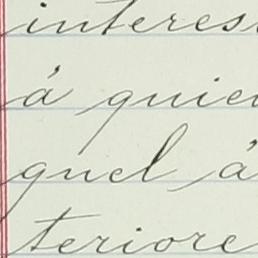 interes
á quie
quel á
teriore